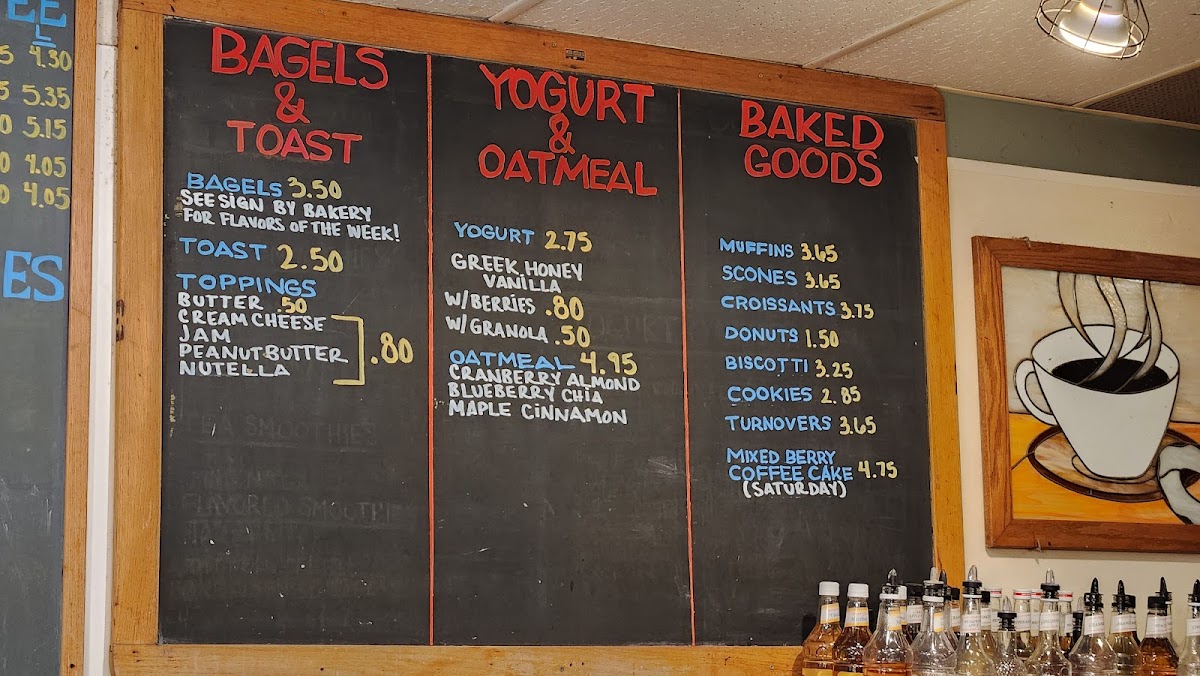 EE
L
5 4.30
5 5.35
0 5.15
0 4.05
0 4.05
ES
BAGELS
&
TOAST
BAGELS 3.50
SEE SIGN BY BAKERY
FOR FLAVORS OF THE WEEK!
TOAST 2.50
TOPPINGS
BUTTER .50
CREAM CHEESE
JAM
PEANUT BUTTER .80
NUTELLA
YOGURT
&
OATMEAL
YOGURT 2.75
GREEK HONEY
VANILLA
W/BERRIES .80
W/GRANOLA .50
OATMEAL 4.95
CRANBERRY ALMOND
BLUEBERRY CHIA
MAPLE CINNAMON
BAKED
GOODS
MUFFINS 3.65
SCONES 3.65
CROISSANTS 3.75
DONUTS 1.50
BISCOTTI 3.25
COOKIES 2.85
TURNOVERS 3.65
MIXED BERRY
COFFEE CAKE 4.75
(SATURDAY)